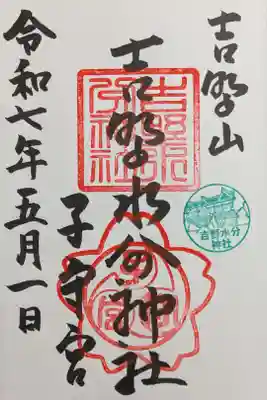 吉野山
吉野水分神社
子守宮
令和七年五月一日
吉野水分神社